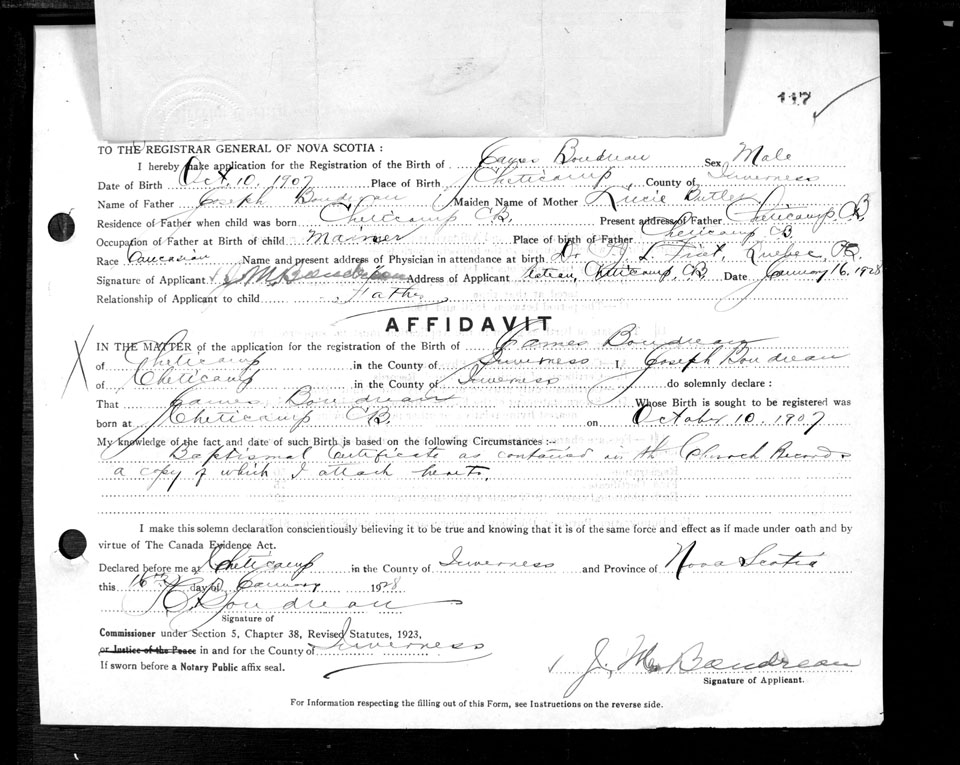 117
TO THE REGISTRAR GENERAL OF NOVA SCOTIA :
I hereby make application for the Registration of the Birth of James Boudreau Sex Male
Date of Birth Oct. 10. 1907 Place of Birth Cheticamp County of Inverness
Name of Father Joseph Boudreau Maiden Name of Mother Lucie
Residence of Father when child was born Cheticamp CB. Present address of Father Cheticamp CB
Occupation of Father at Birth of child Place of birth of Father Cheticamp CB
Race Caucasian Name and present address of Physician in attendance at birth Dr Quebec, PQ.
Signature of Applicant J M Boudreau Address of Applicant Cheticamp, CB. Date January 16, 1928
Relationship of Applicant to child Father
AFFIDAVIT
IN THE MATTER of the application for the registration of the Birth of James Boudreau
of Cheticamp in the County of Inverness I, Joseph Boudreau
of Cheticamp in the County of Inverness do solemnly declare :
That James Boudreau Whose Birth is sought to be registered was
born at Cheticamp CB. on October 10. 1907
My knowledge of the fact and date of such Birth is based on the following Circumstances :-
Baptismal Certificate as contained in th Church Records
a copy of which I attach hereto.
I make this solemn declaration conscientiously believing it to be true and knowing that it is of the same force and effect as if made under oath and by
virtue of The Canada Evidence Act.
Declared before me at Cheticamp in the County of Inverness and Province of Nova Scotia
this 16th day of January 1928
Boudreau
Signature of
Commissioner under Section 5, Chapter 38, Revised Statutes, 1923,
or Justice of the Peace in and for the County of Inverness
If sworn before a Notary Public affix seal.
J. M. Boudreau
Signature of Applicant.
For Information respecting the filling out of this Form, see Instructions on the reverse side.